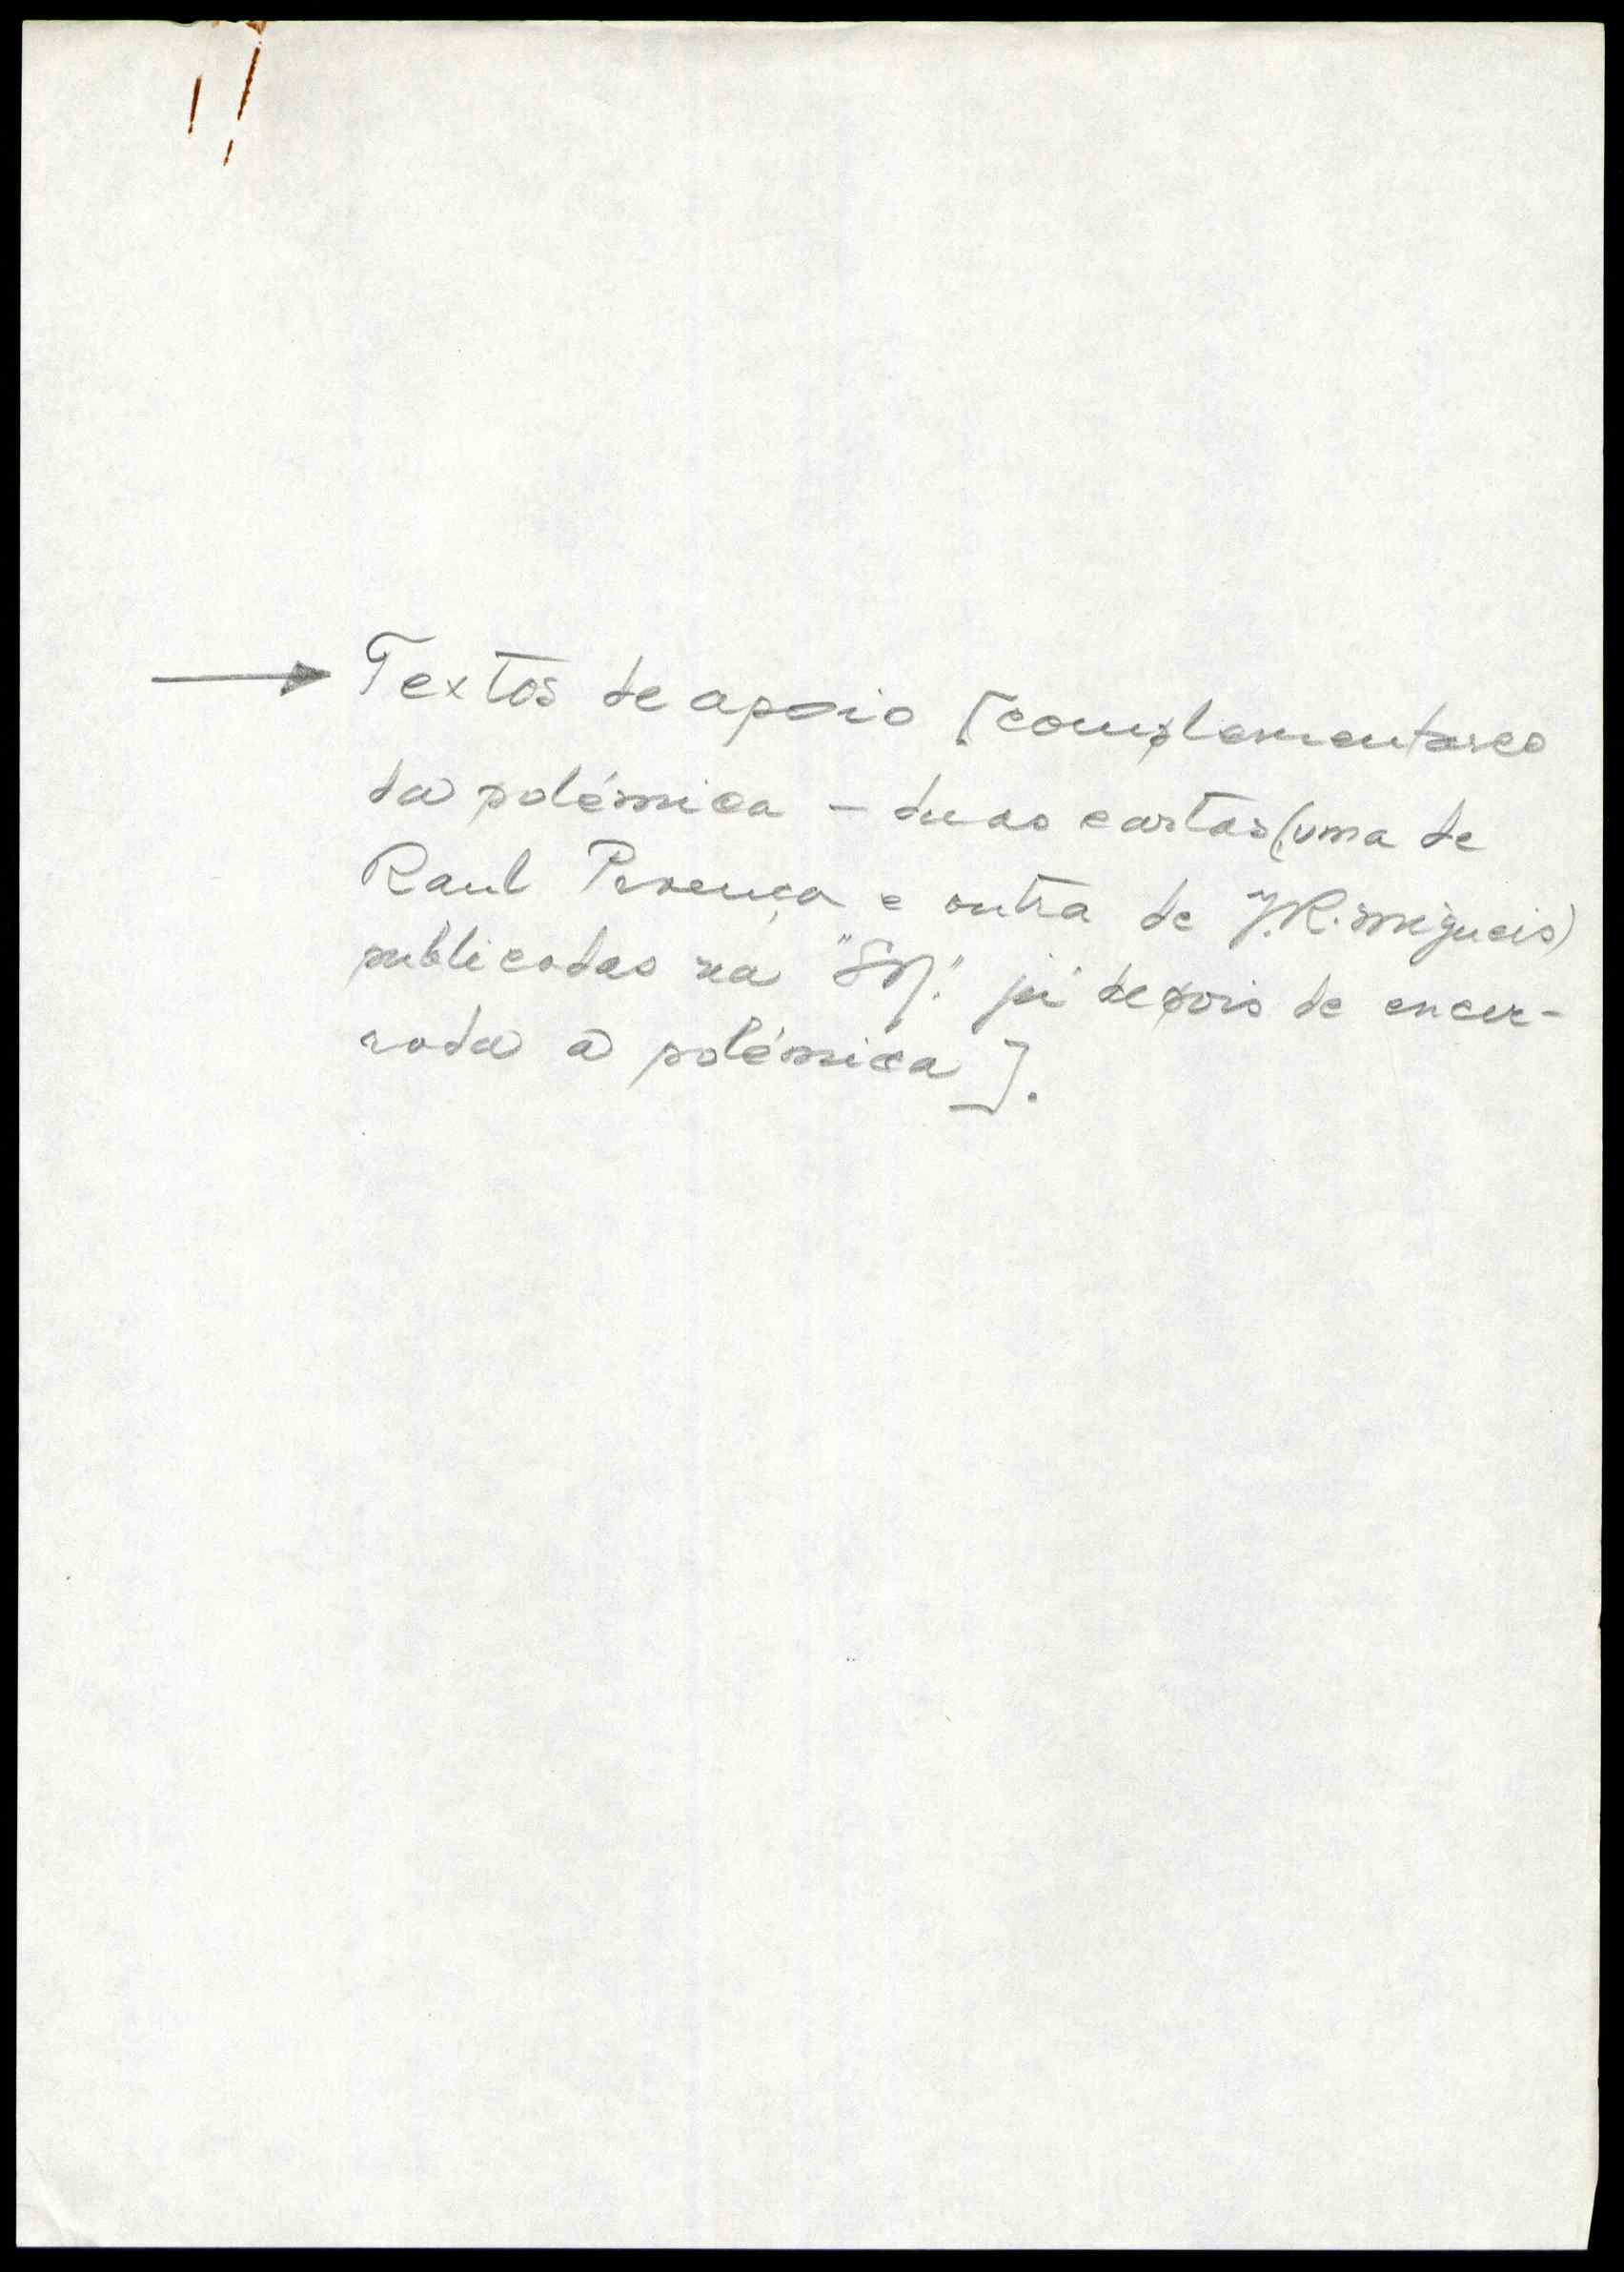 → Textos de apoio [complementares
da polémica – duas cartas (uma de
Raul Proença e outra de J.R. Migueis)
publicadas na "SN." já depois de encer-
rada a polémica].